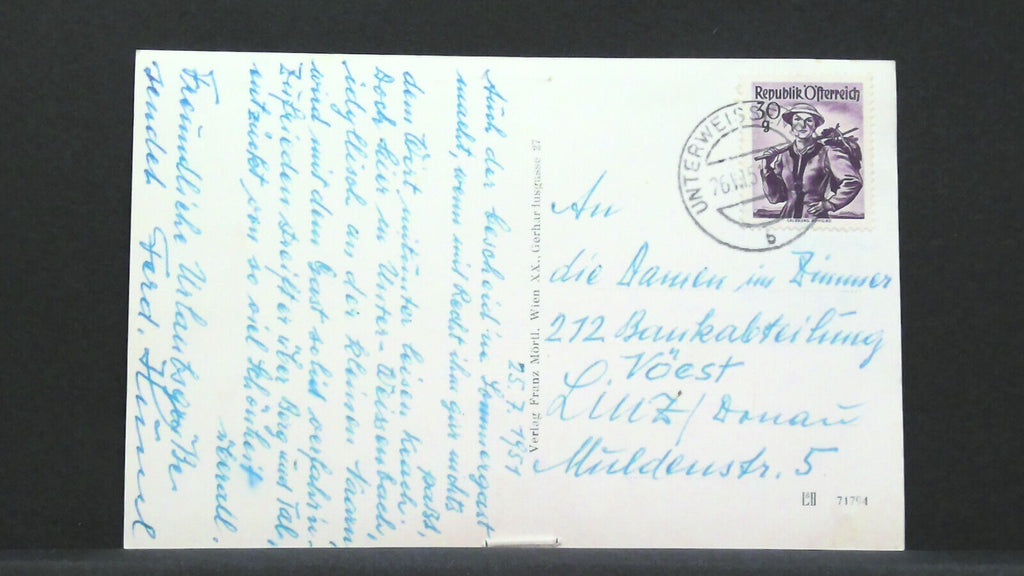 25.7.1951
Auch der bescheid'ne Sommergast
macht, wenn mit Recht ihm gar nichts
passt,
dem Wort mitunter leisen Krach.
Doch hier in Unter-Weissenbach,
idyllisch an der kleinen Naarn
wird mit dem Gast solid verfahr'n.
Zufrieden streift er über Berg und Tal,
entzückt von so viel Schönheit
überall.
Freundliche Urlaubsgrüße
sendet Ferd.
Verlag Franz Mörtl, Wien XX., Gerhardusgasse 27
Republik Österreich
30
g
UNTERWEISS
b
An
die Damen im Zimmer
212 Bankabteilung
Vöest
LINZ/Donau
Muldenstr. 5
71794